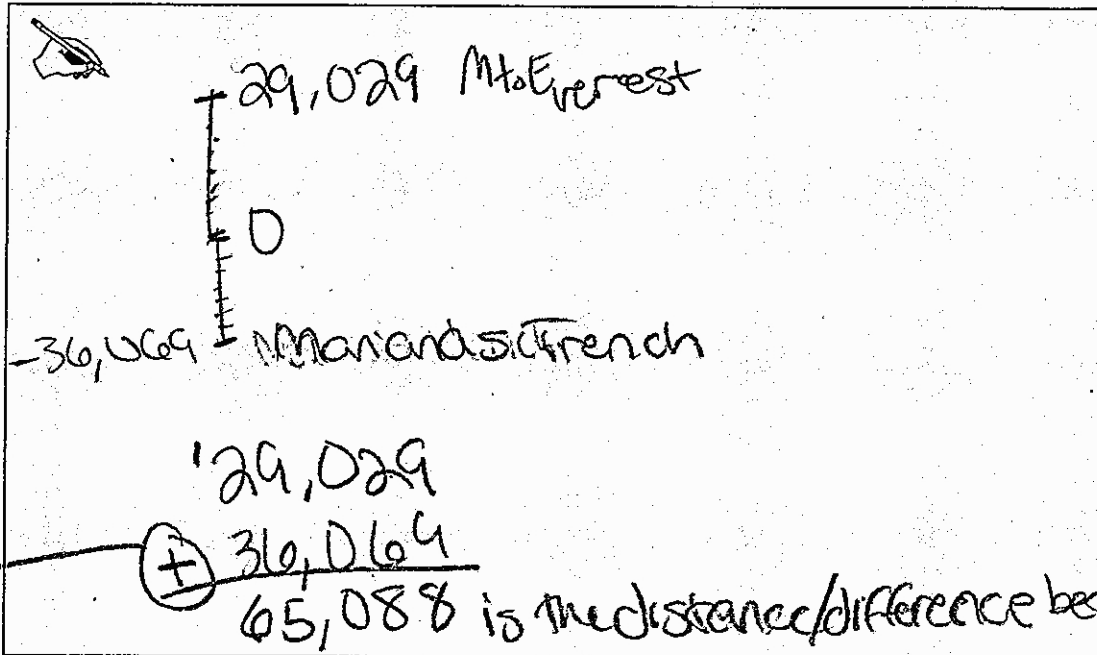 29,029 Mt. Everest
0
-36,069 Marianas Trench
29,029
+ 36,069
65,088 is the distance/difference bec